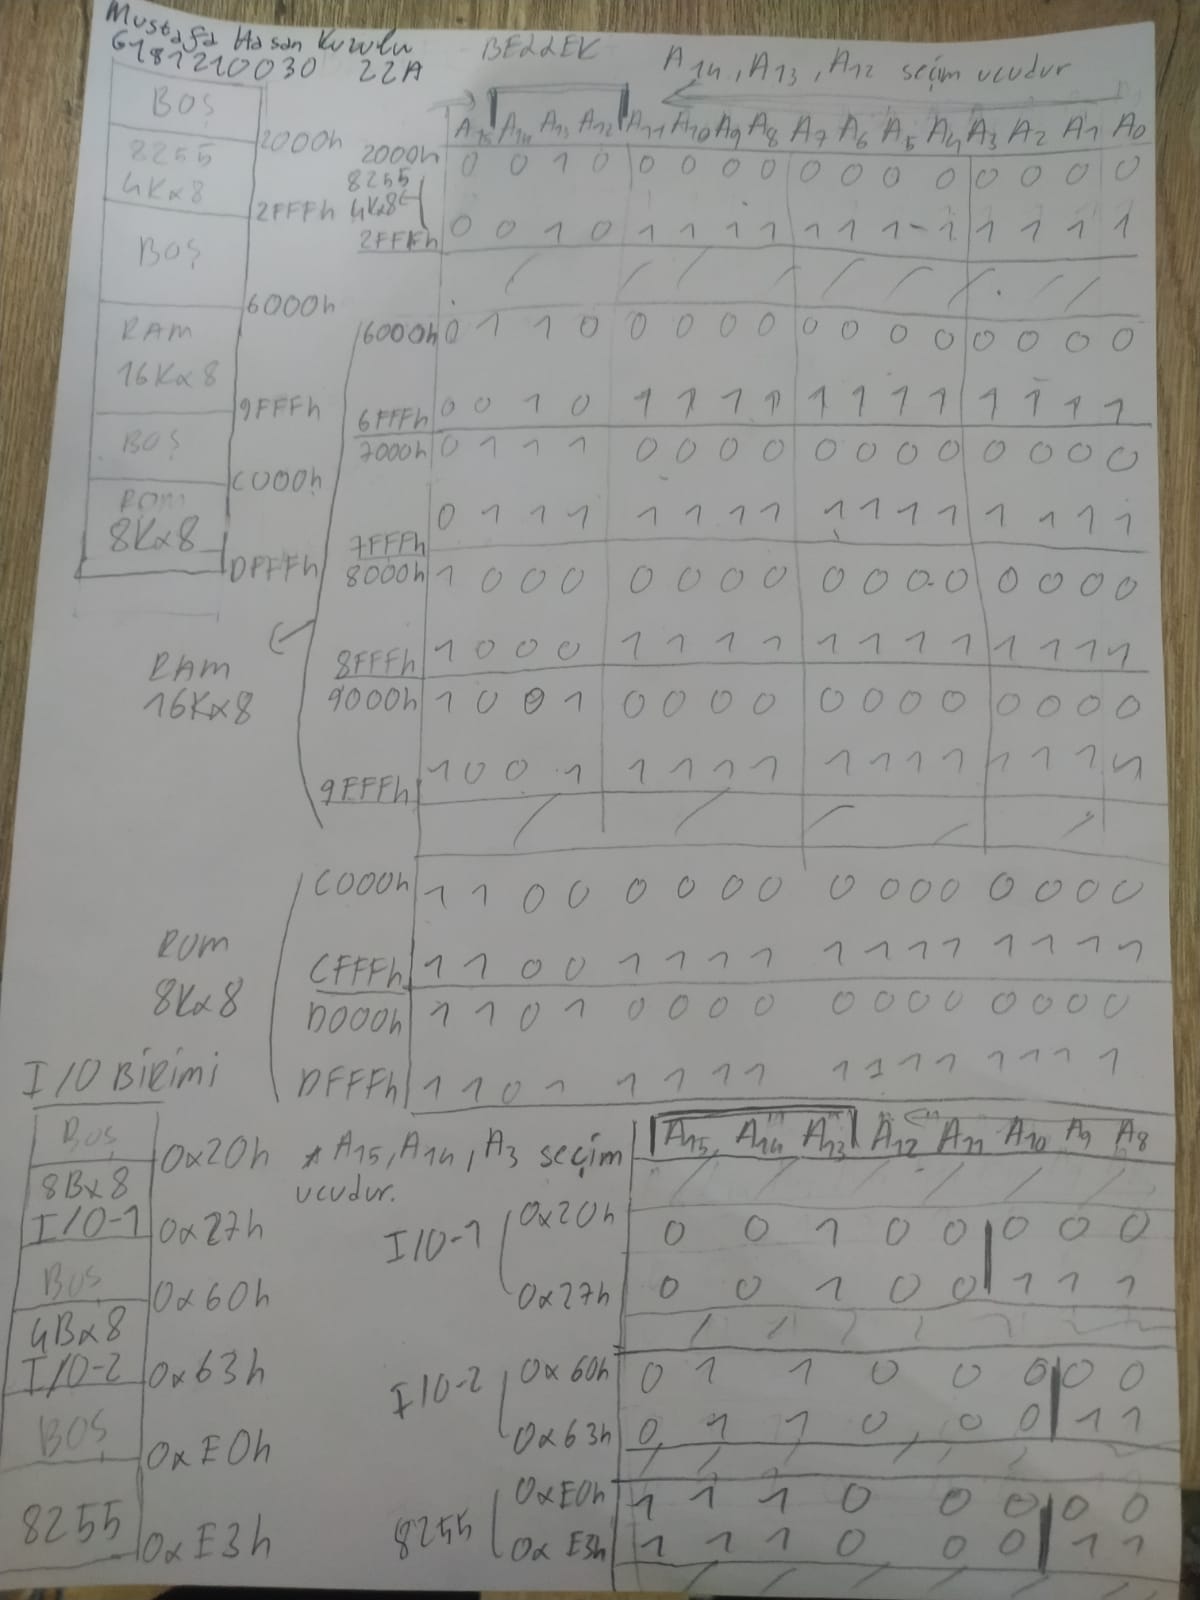 Mustafa Hasan Kuzulu
6181210030 22A
BELLEK
A14, A13, A12 seçim ucudur
BOŞ
2000h
8255
4Kx8
2FFFh
BOŞ
6000h
RAM
16Kx8
9FFFh
BOŞ
C000h
ROM
8Kx8
DFFFh
A15 A14 A13 A12 A11 A10 A9 A8 A7 A6 A5 A4 A3 A2 A1 A0
2000h 0 0 1 0 0 0 0 0 0 0 0 0 0 0 0 0
8255
4Kx8
2FFFh 0 0 1 0 1 1 1 1 1 1 1 1 1 1 1 1
6000h 0 1 1 0 0 0 0 0 0 0 0 0 0 0 0 0
6FFFh 0 0 1 0 1 1 1 1 1 1 1 1 1 1 1 1
7000h 0 1 1 1 0 0 0 0 0 0 0 0 0 0 0 0
7FFFh 0 1 1 1 1 1 1 1 1 1 1 1 1 1 1 1
8000h 1 0 0 0 0 0 0 0 0 0 0 0 0 0 0 0
RAM
16Kx8
8FFFh 1 0 0 0 1 1 1 1 1 1 1 1 1 1 1 1
9000h 1 0 0 1 0 0 0 0 0 0 0 0 0 0 0 0
9FFFh 1 0 0 1 1 1 1 1 1 1 1 1 1 1 1 1
C000h 1 1 0 0 0 0 0 0 0 0 0 0 0 0 0 0
ROM
8Kx8
CFFFh 1 1 0 0 1 1 1 1 1 1 1 1 1 1 1 1
D000h 1 1 0 1 0 0 0 0 0 0 0 0 0 0 0 0
DFFFh 1 1 0 1 1 1 1 1 1 1 1 1 1 1 1 1
I/O BİRİMİ
BOŞ
0x20h
8Bx8
I/O-1
0x27h
BOŞ
0x60h
4Bx8
I/O-2
0x63h
BOŞ
0xE0h
8255
0xE3h
* A15, A14, A3 seçim
ucudur.
A15 A14 A13 A12 A11 A10 A9 A8
I/O-1
0x20h 0 0 1 0 0 0 0 0
0x27h 0 0 1 0 0 1 1 1
I/O-2
0x60h 0 1 1 0 0 0 0 0
0x63h 0 1 1 0 0 0 1 1
8255
0xE0h 1 1 1 0 0 0 0 0
0xE3h 1 1 1 0 0 0 1 1